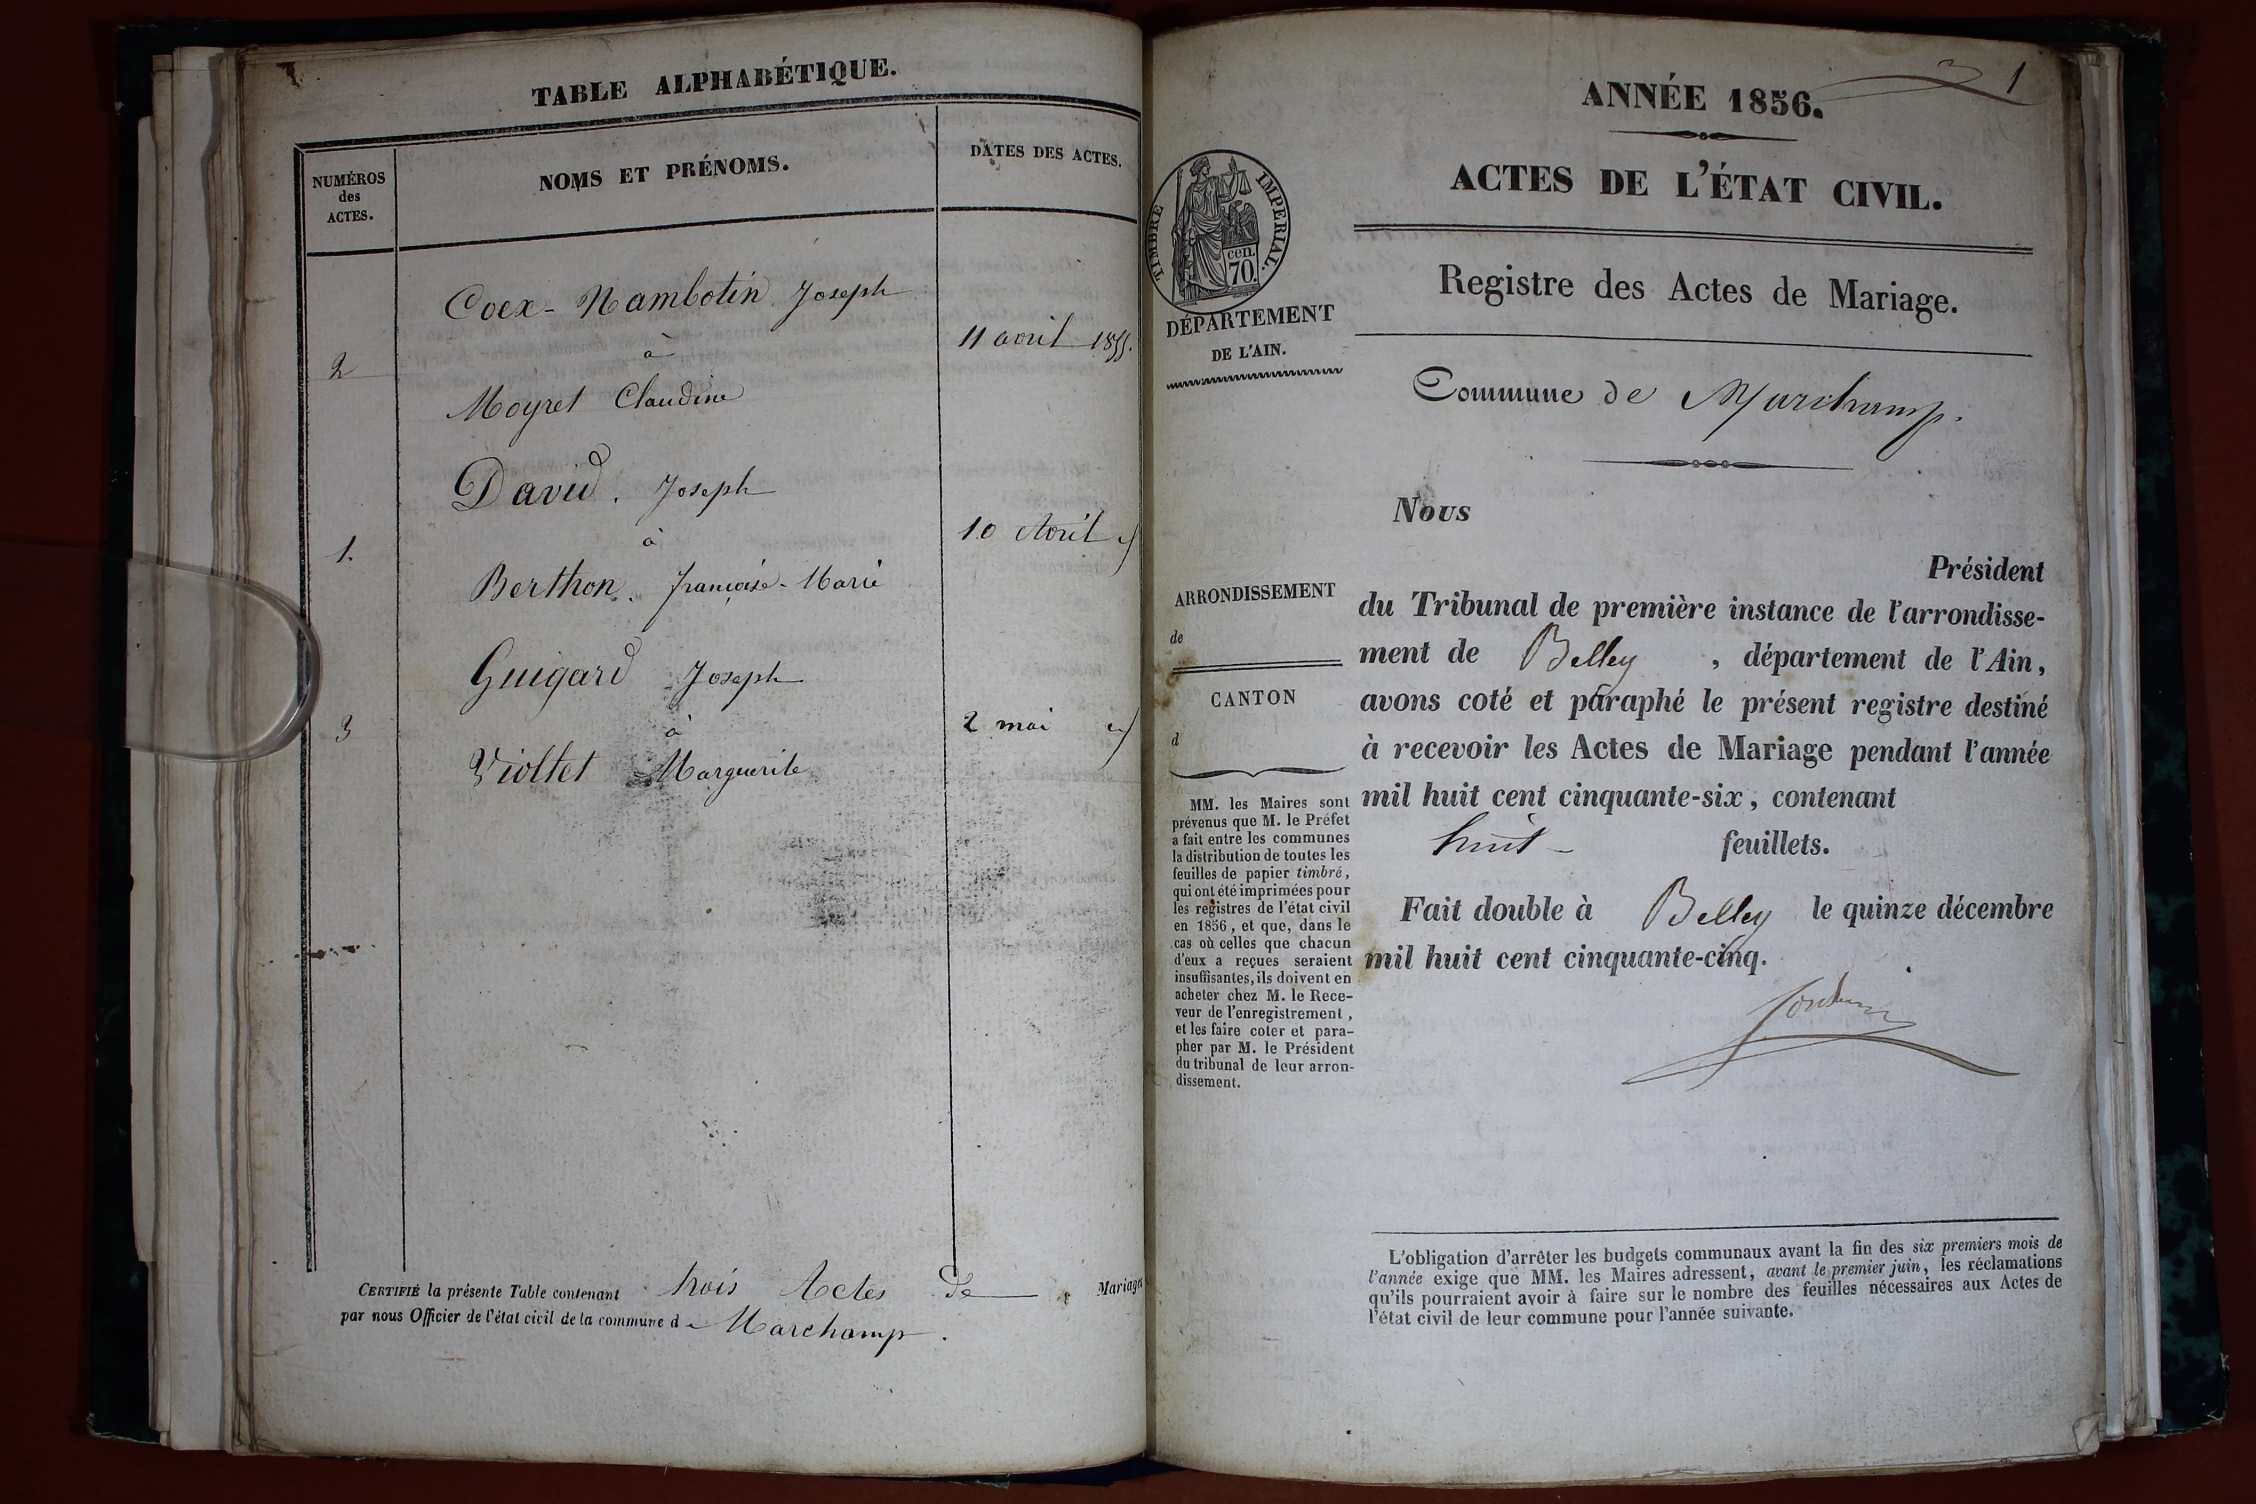 TABLE ALPHABÉTIQUE.
NUMÉROS
des
ACTES.
NOMS ET PRÉNOMS.
DATES DES ACTES.
Coex-Nambotin Joseph
à
2
11 avril 1855.
Moyret Claudine
David. Joseph
à
1.
10 Avril
Berthon. françoise-Marie
Guigard Joseph
à
3
2 mai
Viollet Marguerite
CERTIFIÉ la présente Table contenant trois Actes de Mariages
par nous Officier de l'état civil de la commune d Marchamp.
1
ANNÉE 1856.
ACTES DE L'ÉTAT CIVIL.
TIMBRE IMPERIAL.
cen.
70
Registre des Actes de Mariage.
DÉPARTEMENT
DE L'AIN.
Commune de Marchamp.
Nous
Président
ARRONDISSEMENT
de
CANTON
d
du Tribunal de première instance de l'arrondisse-
ment de Belley, département de l'Ain,
avons coté et paraphé le présent registre destiné
à recevoir les Actes de Mariage pendant l'année
mil huit cent cinquante-six, contenant
huit feuillets.
Fait double à Belley le quinze décembre
mil huit cent cinquante-cinq.
MM. les Maires sont
prévenus que M. le Préfet
a fait entre les communes
la distribution de toutes les
feuilles de papier timbré,
qui ont été imprimées pour
les registres de l'état civil
en 1856, et que, dans le
cas où celles que chacun
d'eux a reçues seraient
insuffisantes, ils doivent en
acheter chez M. le Rece-
veur de l'enregistrement,
et les faire coter et para-
pher par M. le Président
du tribunal de leur arron-
dissement.
L'obligation d'arrêter les budgets communaux avant la fin des six premiers mois de
l'année exige que MM. les Maires adressent, avant le premier juin, les réclamations
qu'ils pourraient avoir à faire sur le nombre des feuilles nécessaires aux Actes de
l'état civil de leur commune pour l'année suivante.